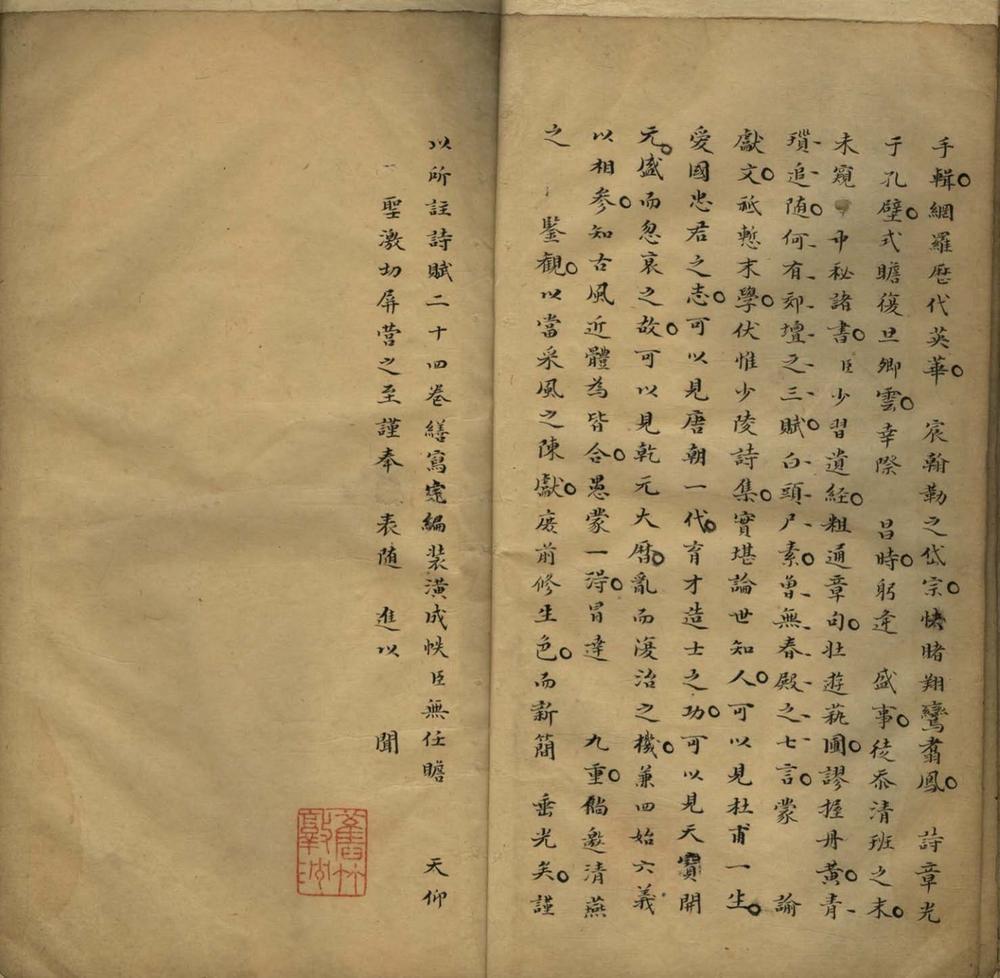 手輯網羅歷代英華　宸翰勒之岱宗快睹翔鸞翥鳳　詩章光
于孔壁式瞻復旦卿雲幸際　昌時躬逢　盛事徒忝清班之末
未窺　中秘諸書臣少習遺經粗通章句壯遊萟圃謬握丹黃青
瑣追隨何有郊壇之三賦白頭尸素曾無春殿之七言蒙　諭
獻文祗慙末學伏惟少陵詩集實堪論世知人可以見杜甫一生
愛國忠君之志可以見唐朝一代育才造士之功可以見天寶開
元盛而忽衰之故可以見乾元大曆亂而復治之機兼四始六義
以相參知古風近體為皆合愚蒙一得冒達　九重倘邀清燕
之　鑒觀以當采風之陳獻庶前修生色而新簡　垂光矣謹
以所註詩賦二十四卷繕寫完編裝潢成帙臣無任瞻　天仰
聖激切屏營之至謹奉　表隨　進以　聞